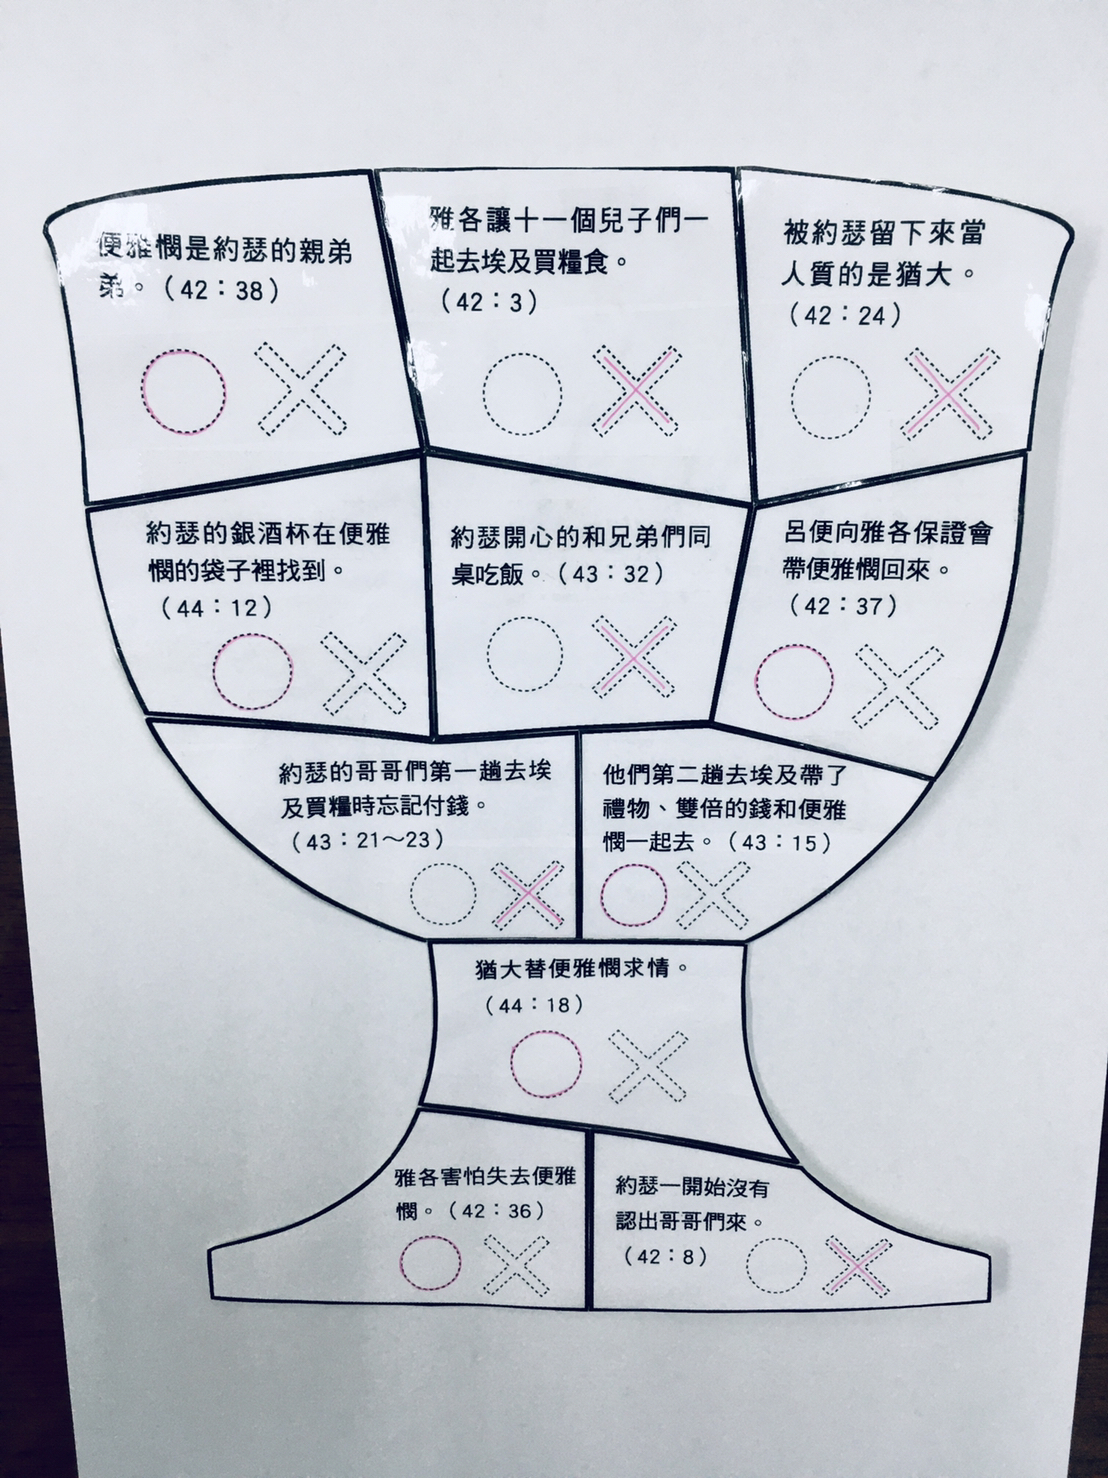 便雅憫是約瑟的親弟
弟。（42：38）
雅各讓十一個兒子們一
起去埃及買糧食。
（42：3）
被約瑟留下來當
人質的是猶大。
（42：24）
約瑟的銀酒杯在便雅
憫的袋子裡找到。
（44：12）
約瑟開心的和兄弟們同
桌吃飯。（43：32）
呂便向雅各保證會
帶便雅憫回來。
（42：37）
約瑟的哥哥們第一趟去埃
及買糧時忘記付錢。
（43：21～23）
他們第二趟去埃及帶了
禮物、雙倍的錢和便雅
憫一起去。（43：15）
猶大替便雅憫求情。
（44：18）
雅各害怕失去便雅
憫。（42：36）
約瑟一開始沒有
認出哥哥們來。
（42：8）